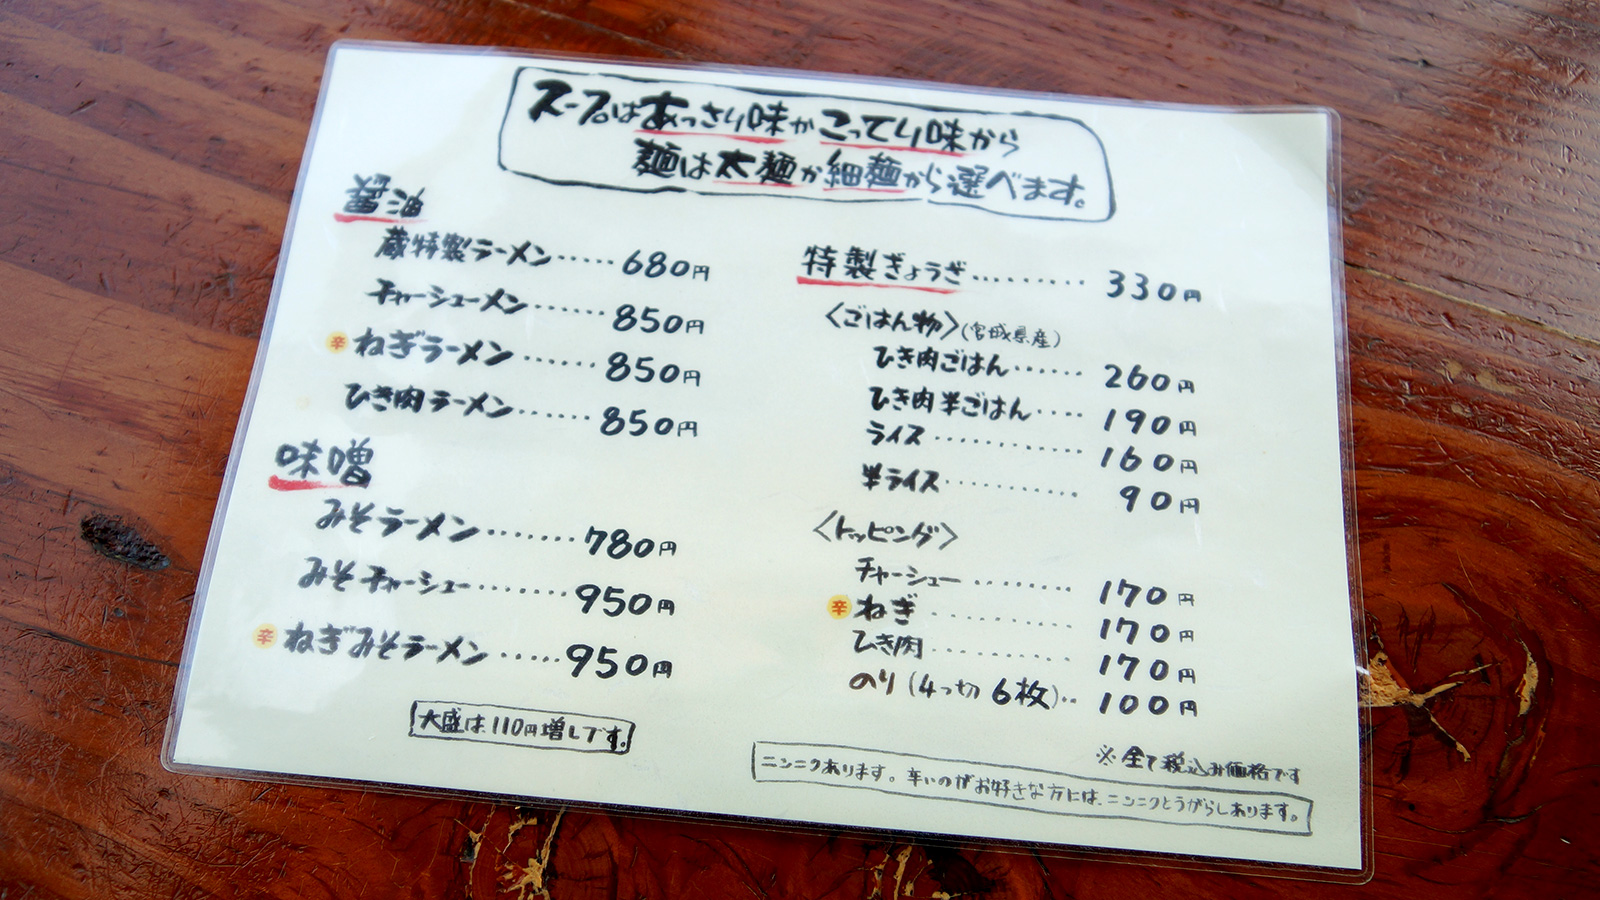 スープはあっさり味かこってり味から
麺は太麺か細麺から選べます。
醤油
蔵特製ラーメン……680円
チャーシューメン……850円
辛 ねぎラーメン……850円
ひき肉ラーメン……850円
味噌
みそラーメン………780円
みそチャーシュー………950円
辛 ねぎみそラーメン……950円
大盛は110円増しです。
特製ぎょうざ………330円
〈ごはん物〉(宮城県産)
ひき肉ごはん……260円
ひき肉半ごはん‥‥190円
ライス…………160円
半ライス…………90円
〈トッピング〉
チャーシュー………170円
辛 ねぎ…………170円
ひき肉…………170円
のり(4つ切 6枚)‥100円
※全て税込み価格です
ニンニクあります。辛いのがお好きな方には、ニンニクとうがらしあります。